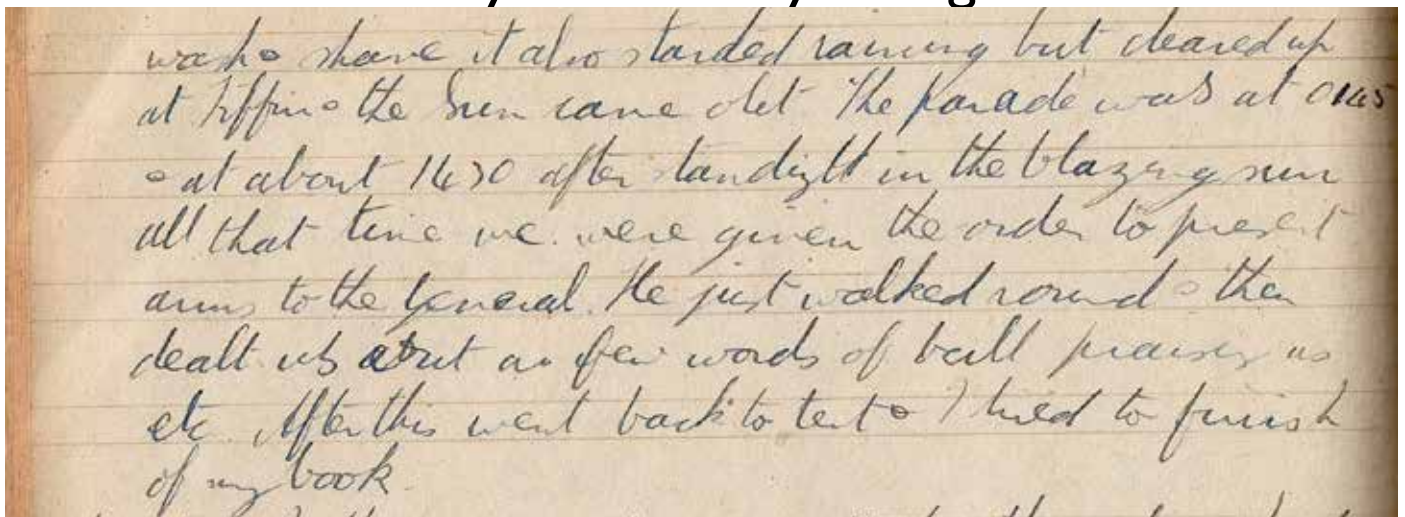 wash & shave it also started raining but cleared up
at tiffin & the sun came out. The parade was at 0145
& at about 1430 after standing in the blazing sun
all that time we were given the order to present
arms to the General. He just walked round & then
dealt us out a few words of bull praising us
etc. After this went back to tent & I tried to finish
of my book.